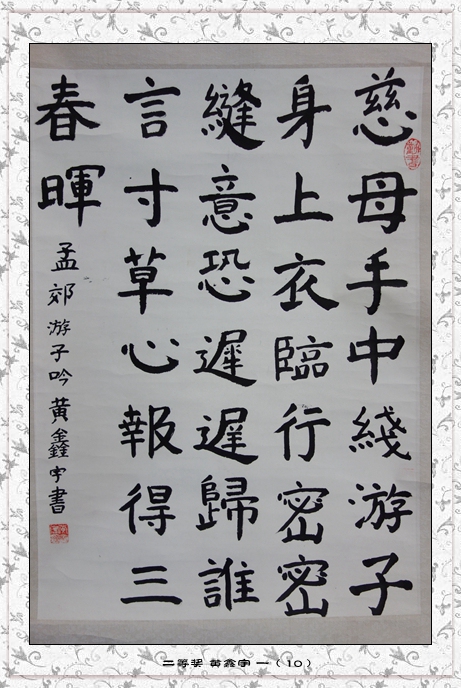 慈母手中綫游子
身上衣臨行密密
縫意恐遲遲歸誰
言寸草心報得三
春暉
孟郊游子吟黄鑫宇書
二等奖 黄鑫宇 一（10）